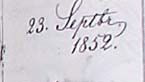 23. Septbr
1852.